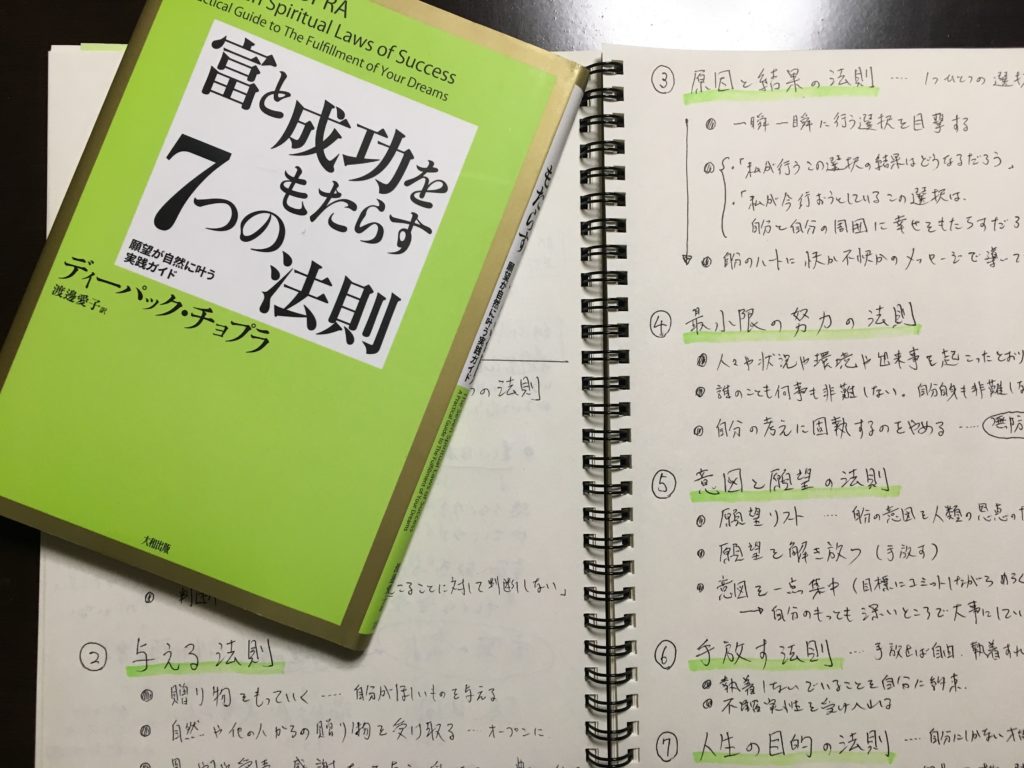 PRA
Spiritual Laws of Success
Practical Guide to The Fulfillment of Your Dreams
富と成功を
もたらす
7つの
法則
願望が自然に叶う
実践ガイド
ディーパック・チョプラ
渡邊愛子 訳
大和出版
もたらす
願望が自然に叶う実践ガイド
の法則
ることに対して判断しない」
② 与える法則
贈り物をもっていく …… 自分がほしいものを与える
自然や他の人からの贈り物を受け取る … オープンに
③ 原因と結果の法則 …… 1つひとつの選択
一瞬一瞬に行う選択を目撃する
・「私が行うこの選択の結果はどうなるだろう」
・「私が今行おうとしているこの選択は、
自分と自分の周囲に幸せをもたらすだろ
自分のハートに快か不快かのメッセージで導いて
④ 最小限の努力の法則
人々や状況や環境や出来事を起こったとおり
誰のことも何事も非難しない。自分自身も非難しな
自分の考えに固執するのをやめる …… 無防
⑤ 意図と願望の法則
願望リスト …… 自分の意図と人類の恩恵の
願望を解き放つ(手放す)
意図を一点集中(目標にコミットしながら
→ 自分のもっとも深いところで大事にしてい
⑥ 手放す法則 …… 手放せば自由、執着すれ
執着しないでいることを自分に約束。
不確実性を受け入れる
⑦ 人生の目的の法則 …… 自分にしかない